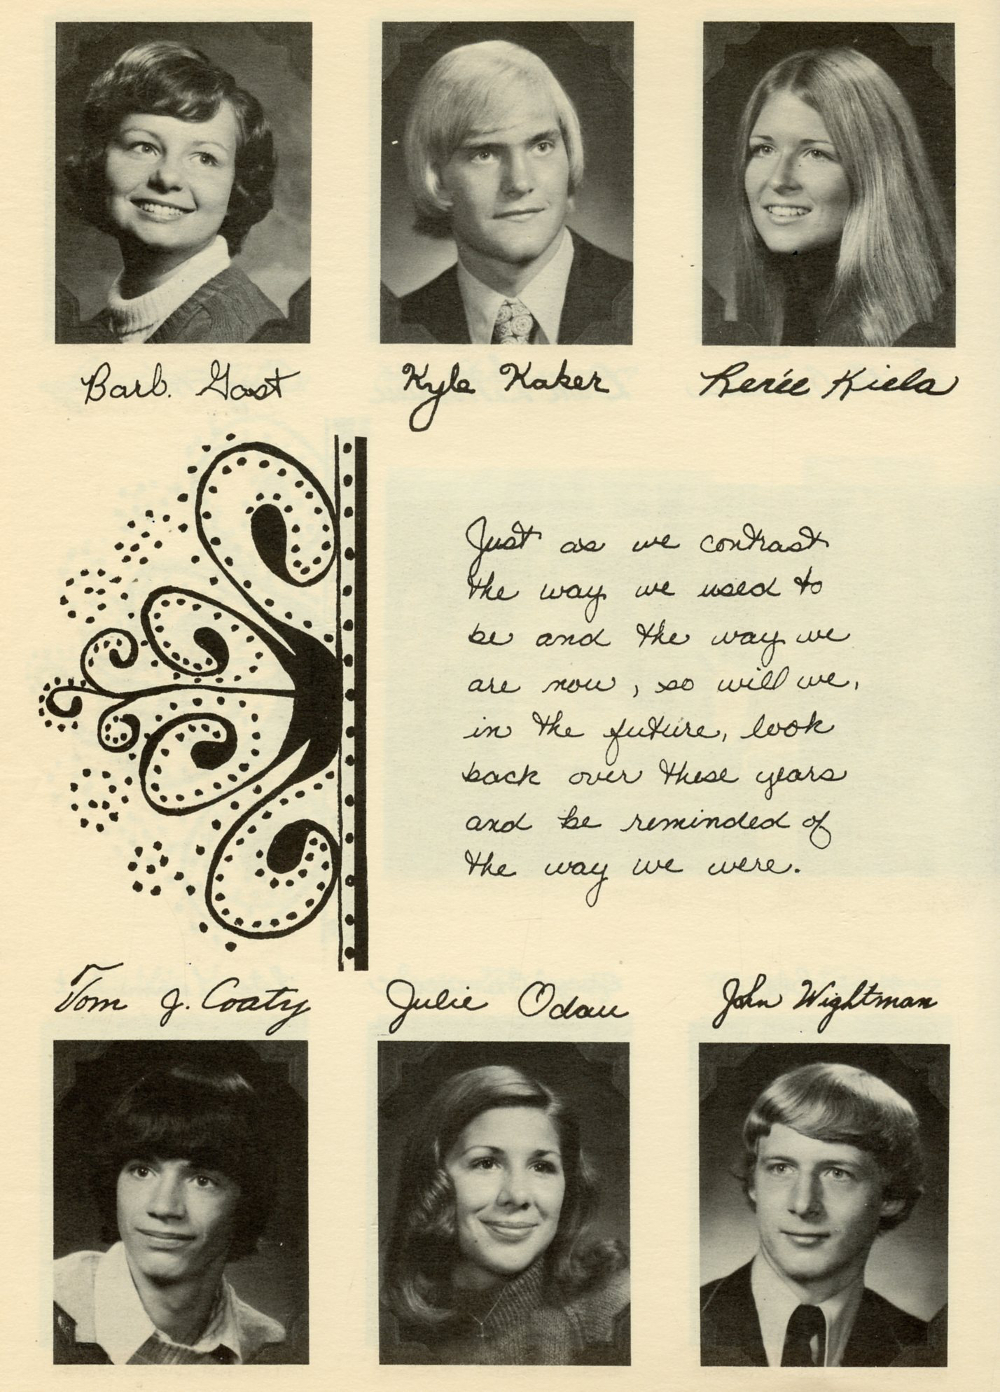 Barb. Gast
Kyle Kaker
Renée Kiela
Just as we contrast
the way we used to
be and the way we
are now, so will we,
in the future, look
back over these years
and be reminded of
the way we were.
Tom J. Coaty
Julie Odau
John Wightman